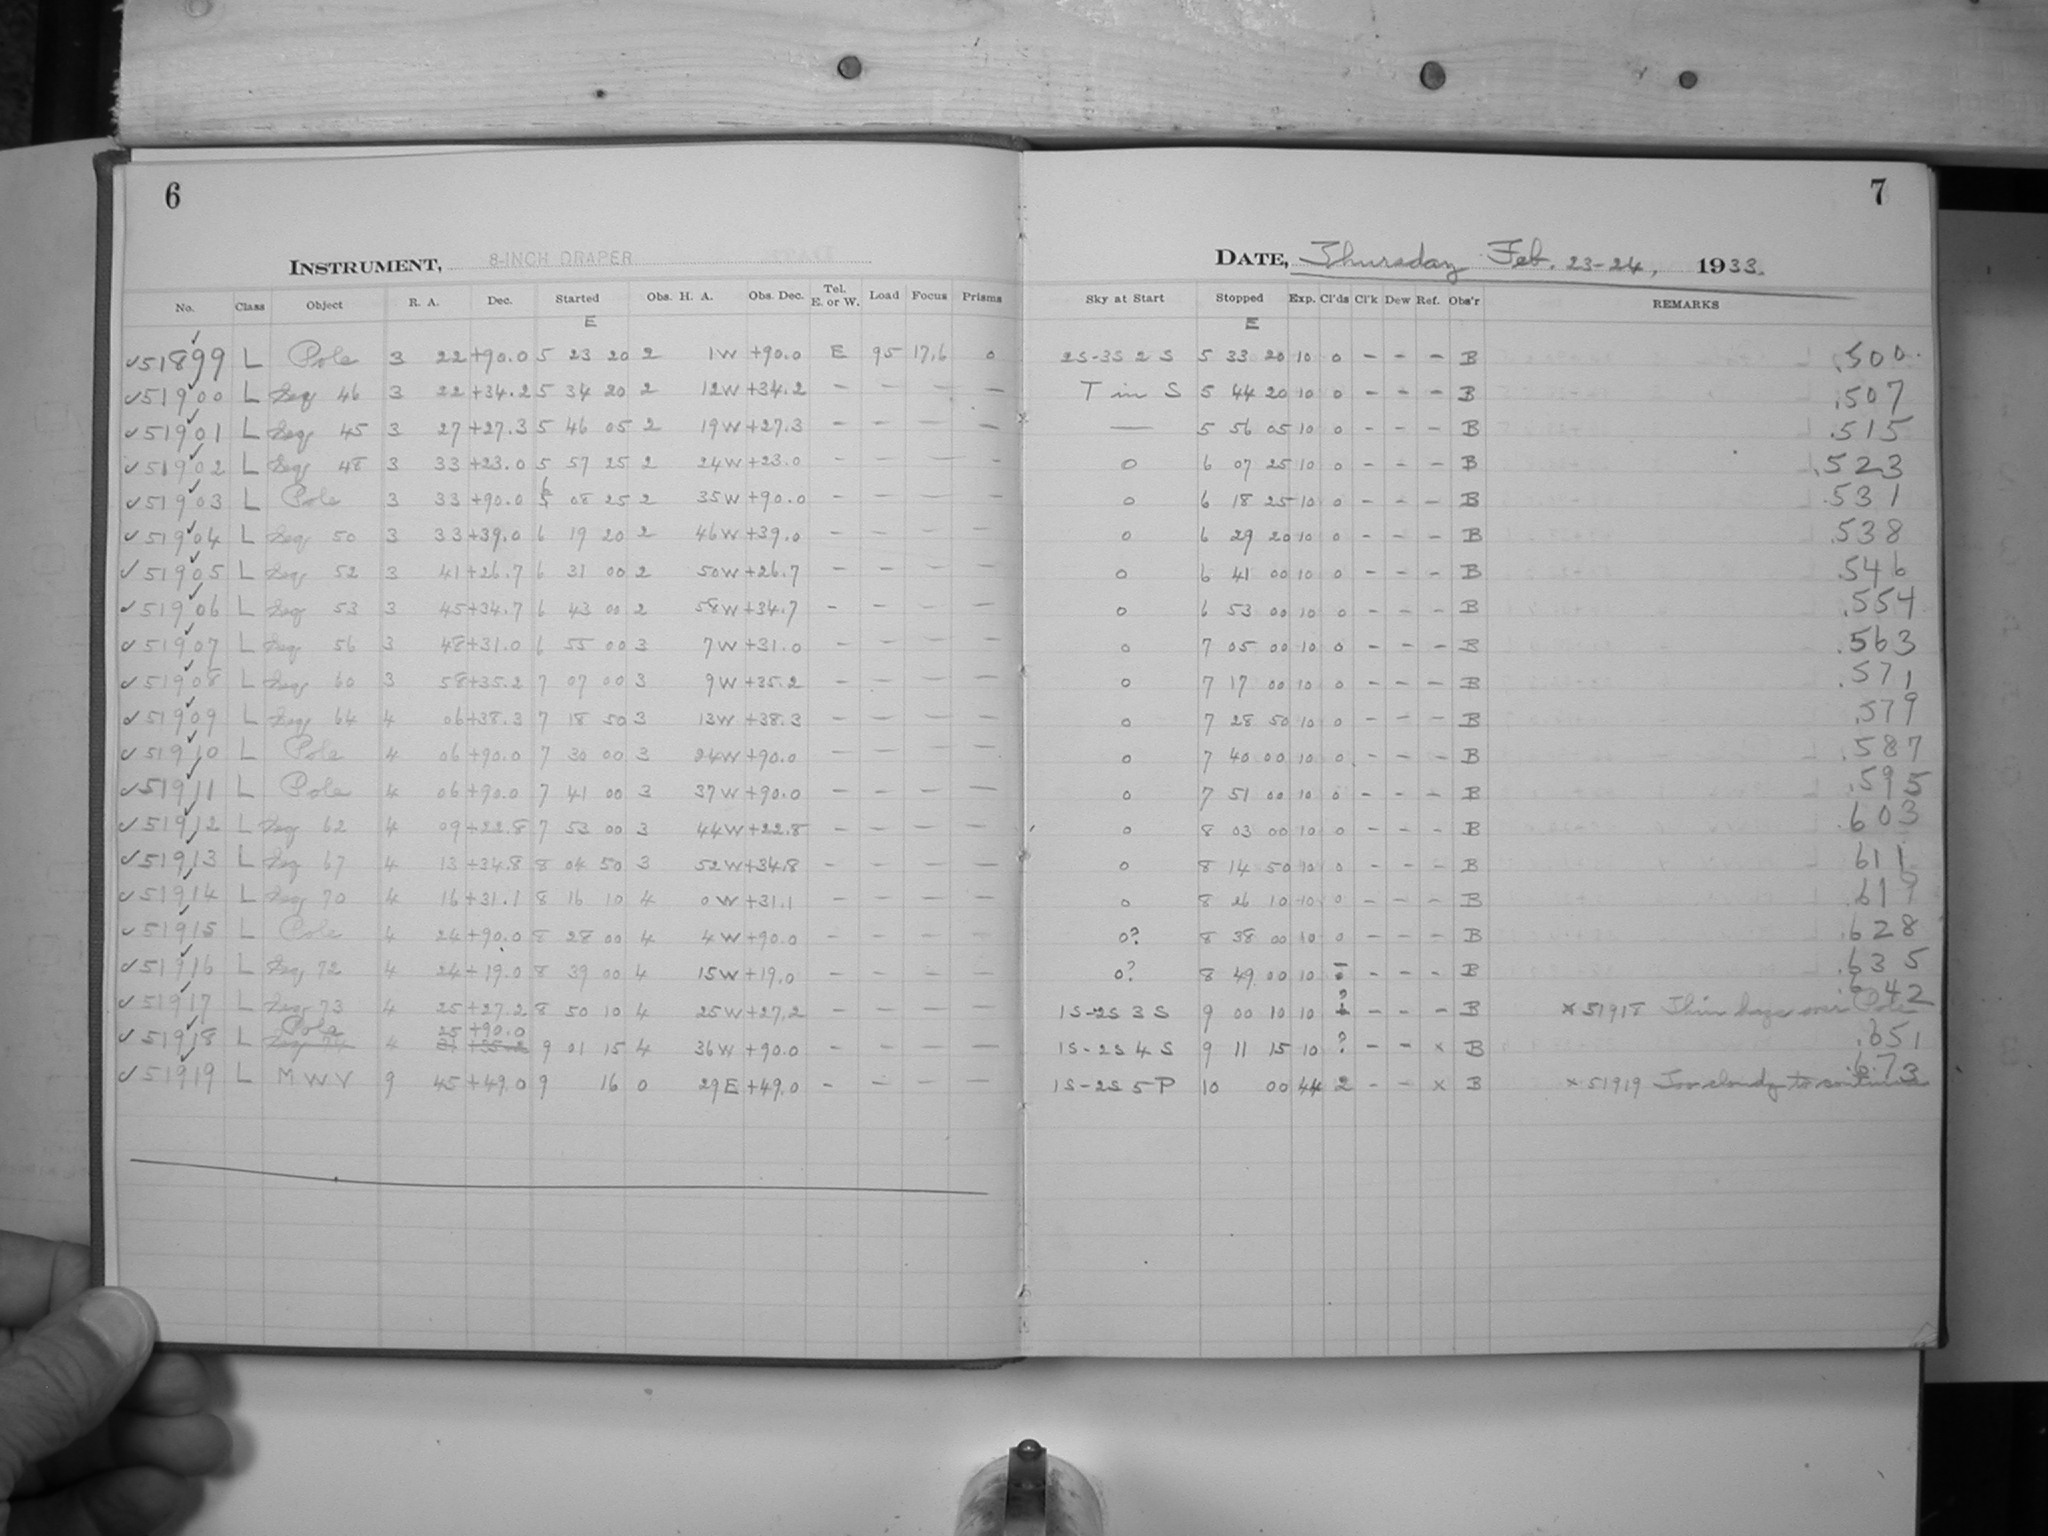 6
INSTRUMENT, 8-INCH DRAPER
No. Class Object R. A. Dec. Started Obs. H. A. Obs. Dec. Tel. E. or W. Load Focus Prisms
E
✓51899 L Pole 3 22 +90.0 5 23 20 2 1W +90.0 E 95 17.6 0
✓51900 L Seq 46 3 22 +34.2 5 34 20 2 12W +34.2 – – – –
✓51901 L Seq 45 3 27 +27.3 5 46 05 2 19W +27.3 – – – –
✓51902 L Seq 48 3 33 +23.0 5 57 25 2 24W +23.0 – – – –
✓51903 L Pole 3 33 +90.0 6 08 25 2 35W +90.0 – – – –
✓51904 L Seq 50 3 33 +39.0 6 19 20 2 46W +39.0 – – – –
✓51905 L Seq 52 3 41 +26.7 6 31 00 2 50W +26.7 – – – –
✓51906 L Seq 53 3 45 +34.7 6 43 00 2 58W +34.7 – – – –
✓51907 L Seq 56 3 48 +31.0 6 55 00 3 7W +31.0 – – – –
✓51908 L Seq 60 3 58 +35.2 7 07 00 3 9W +35.2 – – – –
✓51909 L Seq 64 4 06 +38.3 7 18 50 3 13W +38.3 – – – –
✓51910 L Pole 4 06 +90.0 7 30 00 3 24W +90.0 – – – –
✓51911 L Pole 4 06 +90.0 7 41 00 3 37W +90.0 – – – –
✓51912 L Seq 62 4 09 +22.8 7 53 00 3 44W +22.8 – – – –
✓51913 L Seq 67 4 13 +34.8 8 04 50 3 52W +34.8 – – – –
✓51914 L Seq 70 4 16 +31.1 8 16 10 4 0W +31.1 – – – –
✓51915 L Pole 4 24 +90.0 8 28 00 4 4W +90.0 – – – –
✓51916 L Seq 72 4 24 +19.0 8 39 00 4 15W +19.0 – – – –
✓51917 L Seq 73 4 25 +27.2 8 50 10 4 25W +27.2 – – – –
Pole 25 +90.0
✓51918 L Seq 74 4 31 +35.2 9 01 15 4 36W +90.0 – – – –
✓51919 L M W V 9 45 +49.0 9 16 0 29E +49.0 – – – –
7
DATE, Thursday Feb. 23-24, 1933.
Sky at Start Stopped Exp. Cl'ds Cl'k Dew Ref. Obs'r REMARKS
E
2S-3S 2 S 5 33 20 10 0 – – – B .500
T in S 5 44 20 10 0 – – – B .507
— 5 56 05 10 0 – – – B .515
0 6 07 25 10 0 – – – B .523
0 6 18 25 10 0 – – – B .531
0 6 29 20 10 0 – – – B .538
0 6 41 00 10 0 – – – B .546
0 6 53 00 10 0 – – – B .554
0 7 05 00 10 0 – – – B .563
0 7 17 00 10 0 – – – B .571
0 7 28 50 10 0 – – – B .579
0 7 40 00 10 0 – – – B .587
0 7 51 00 10 0 – – – B .595
0 8 03 00 10 0 – – – B .603
0 8 14 50 10 0 – – – B .611
0 8 26 10 10 0 – – – B .619
0? 8 38 00 10 0 – – – B .628
0? 8 49 00 10 – – – B .635
1S-2S 3 S 9 00 10 10 – – – B × 51918 Thin haze over Pole .642
1S-2S 4 S 9 11 15 10 ? – – × B .651
1S-2S 5 P 10 00 44 2 – – × B × 51919 Too cloudy to continue .673